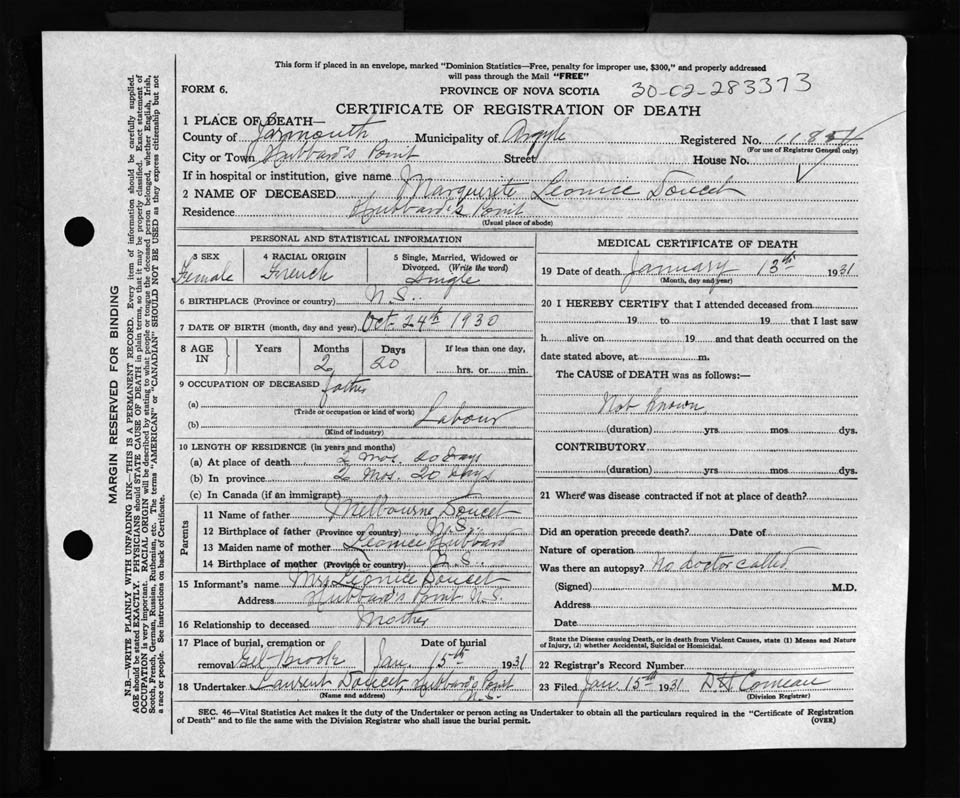 This form if placed in an envelope, marked "Dominion Statistics—Free, penalty for improper use, $300," and properly addressed
will pass through the Mail "FREE"
FORM 6.
PROVINCE OF NOVA SCOTIA
30-02-283373
CERTIFICATE OF REGISTRATION OF DEATH
1 PLACE OF DEATH—
County of Yarmouth Municipality of Argyle Registered No.
(For use of Registrar General only)
City or Town Hubbard's Point Street House No.
If in hospital or institution, give name
2 NAME OF DECEASED Marguerite Leonice Doucet
Residence Hubbard's Point
(Usual place of abode)
PERSONAL AND STATISTICAL INFORMATION
3 SEX 4 RACIAL ORIGIN 5 Single, Married, Widowed or
Divorced. (Write the word)
Female French Single
6 BIRTHPLACE (Province or country) N.S.
7 DATE OF BIRTH (month, day and year) Oct. 24th 1930
8 AGE
IN
Years Months Days If less than one day,
2 20 hrs. or min.
9 OCCUPATION OF DECEASED father
(a)
(Trade or occupation or kind of work)
(b) Labour
(Kind of industry)
10 LENGTH OF RESIDENCE (in years and months)
(a) At place of death 2 mos. 20 days
(b) In province 2 Mos. 20 days
(c) In Canada (if an immigrant)
Parents
11 Name of father Melbourne Doucet
12 Birthplace of father (Province or country) N.S.
13 Maiden name of mother Leonice Hubbard
14 Birthplace of mother (Province or country) N.S.
15 Informant's name Mrs Leonice Doucet
Address Hubbard's Point N.S.
16 Relationship to deceased Mother
17 Place of burial, cremation or Date of burial
removal Eel-Brook Jan. 15th 1931
18 Undertaker Laurent Doucet, Hubbard's Point
(Name and address) N.S.
MEDICAL CERTIFICATE OF DEATH
19 Date of death January 13th 1931
(Month, day and year)
20 I HEREBY CERTIFY that I attended deceased from
19 to 19 that I last saw
h alive on 19 and that death occurred on the
date stated above, at m.
The CAUSE of DEATH was as follows:—
Not known
(duration) yrs. mos. dys.
CONTRIBUTORY
(duration) yrs. mos. dys.
21 Where was disease contracted if not at place of death?
Did an operation precede death? Date of
Nature of operation
Was there an autopsy? No doctor called
(Signed) M.D.
Address
Date
State the Disease causing Death, or in death from Violent Causes, state (1) Means and Nature
of Injury, (2) whether Accidental, Suicidal or Homicidal.
22 Registrar's Record Number
23 Filed Jan 15th 1931 Comeau
(Division Registrar)
SEC. 46—Vital Statistics Act makes it the duty of the Undertaker or person acting as Undertaker to obtain all the particulars required in the "Certificate of Registration
of Death" and to file the same with the Division Registrar who shall issue the burial permit.
(OVER)
MARGIN RESERVED FOR BINDING
N.B.—WRITE PLAINLY WITH UNFADING INK—THIS IS A PERMANENT RECORD. Every item of information should be carefully supplied.
AGE should be stated EXACTLY. PHYSICIANS should STATE CAUSE OF DEATH in plain terms, so that it may be properly classified. Exact statement of
OCCUPATION is very important. RACIAL ORIGIN will be described by stating to what people or tongue the deceased person belonged, whether English, Irish,
Scotch, French, German, Russian, Ruthenian, etc. The terms "AMERICAN" or "CANADIAN" SHOULD NOT BE USED as they express citizenship but not
a race or people. See instructions on back of Certificate.